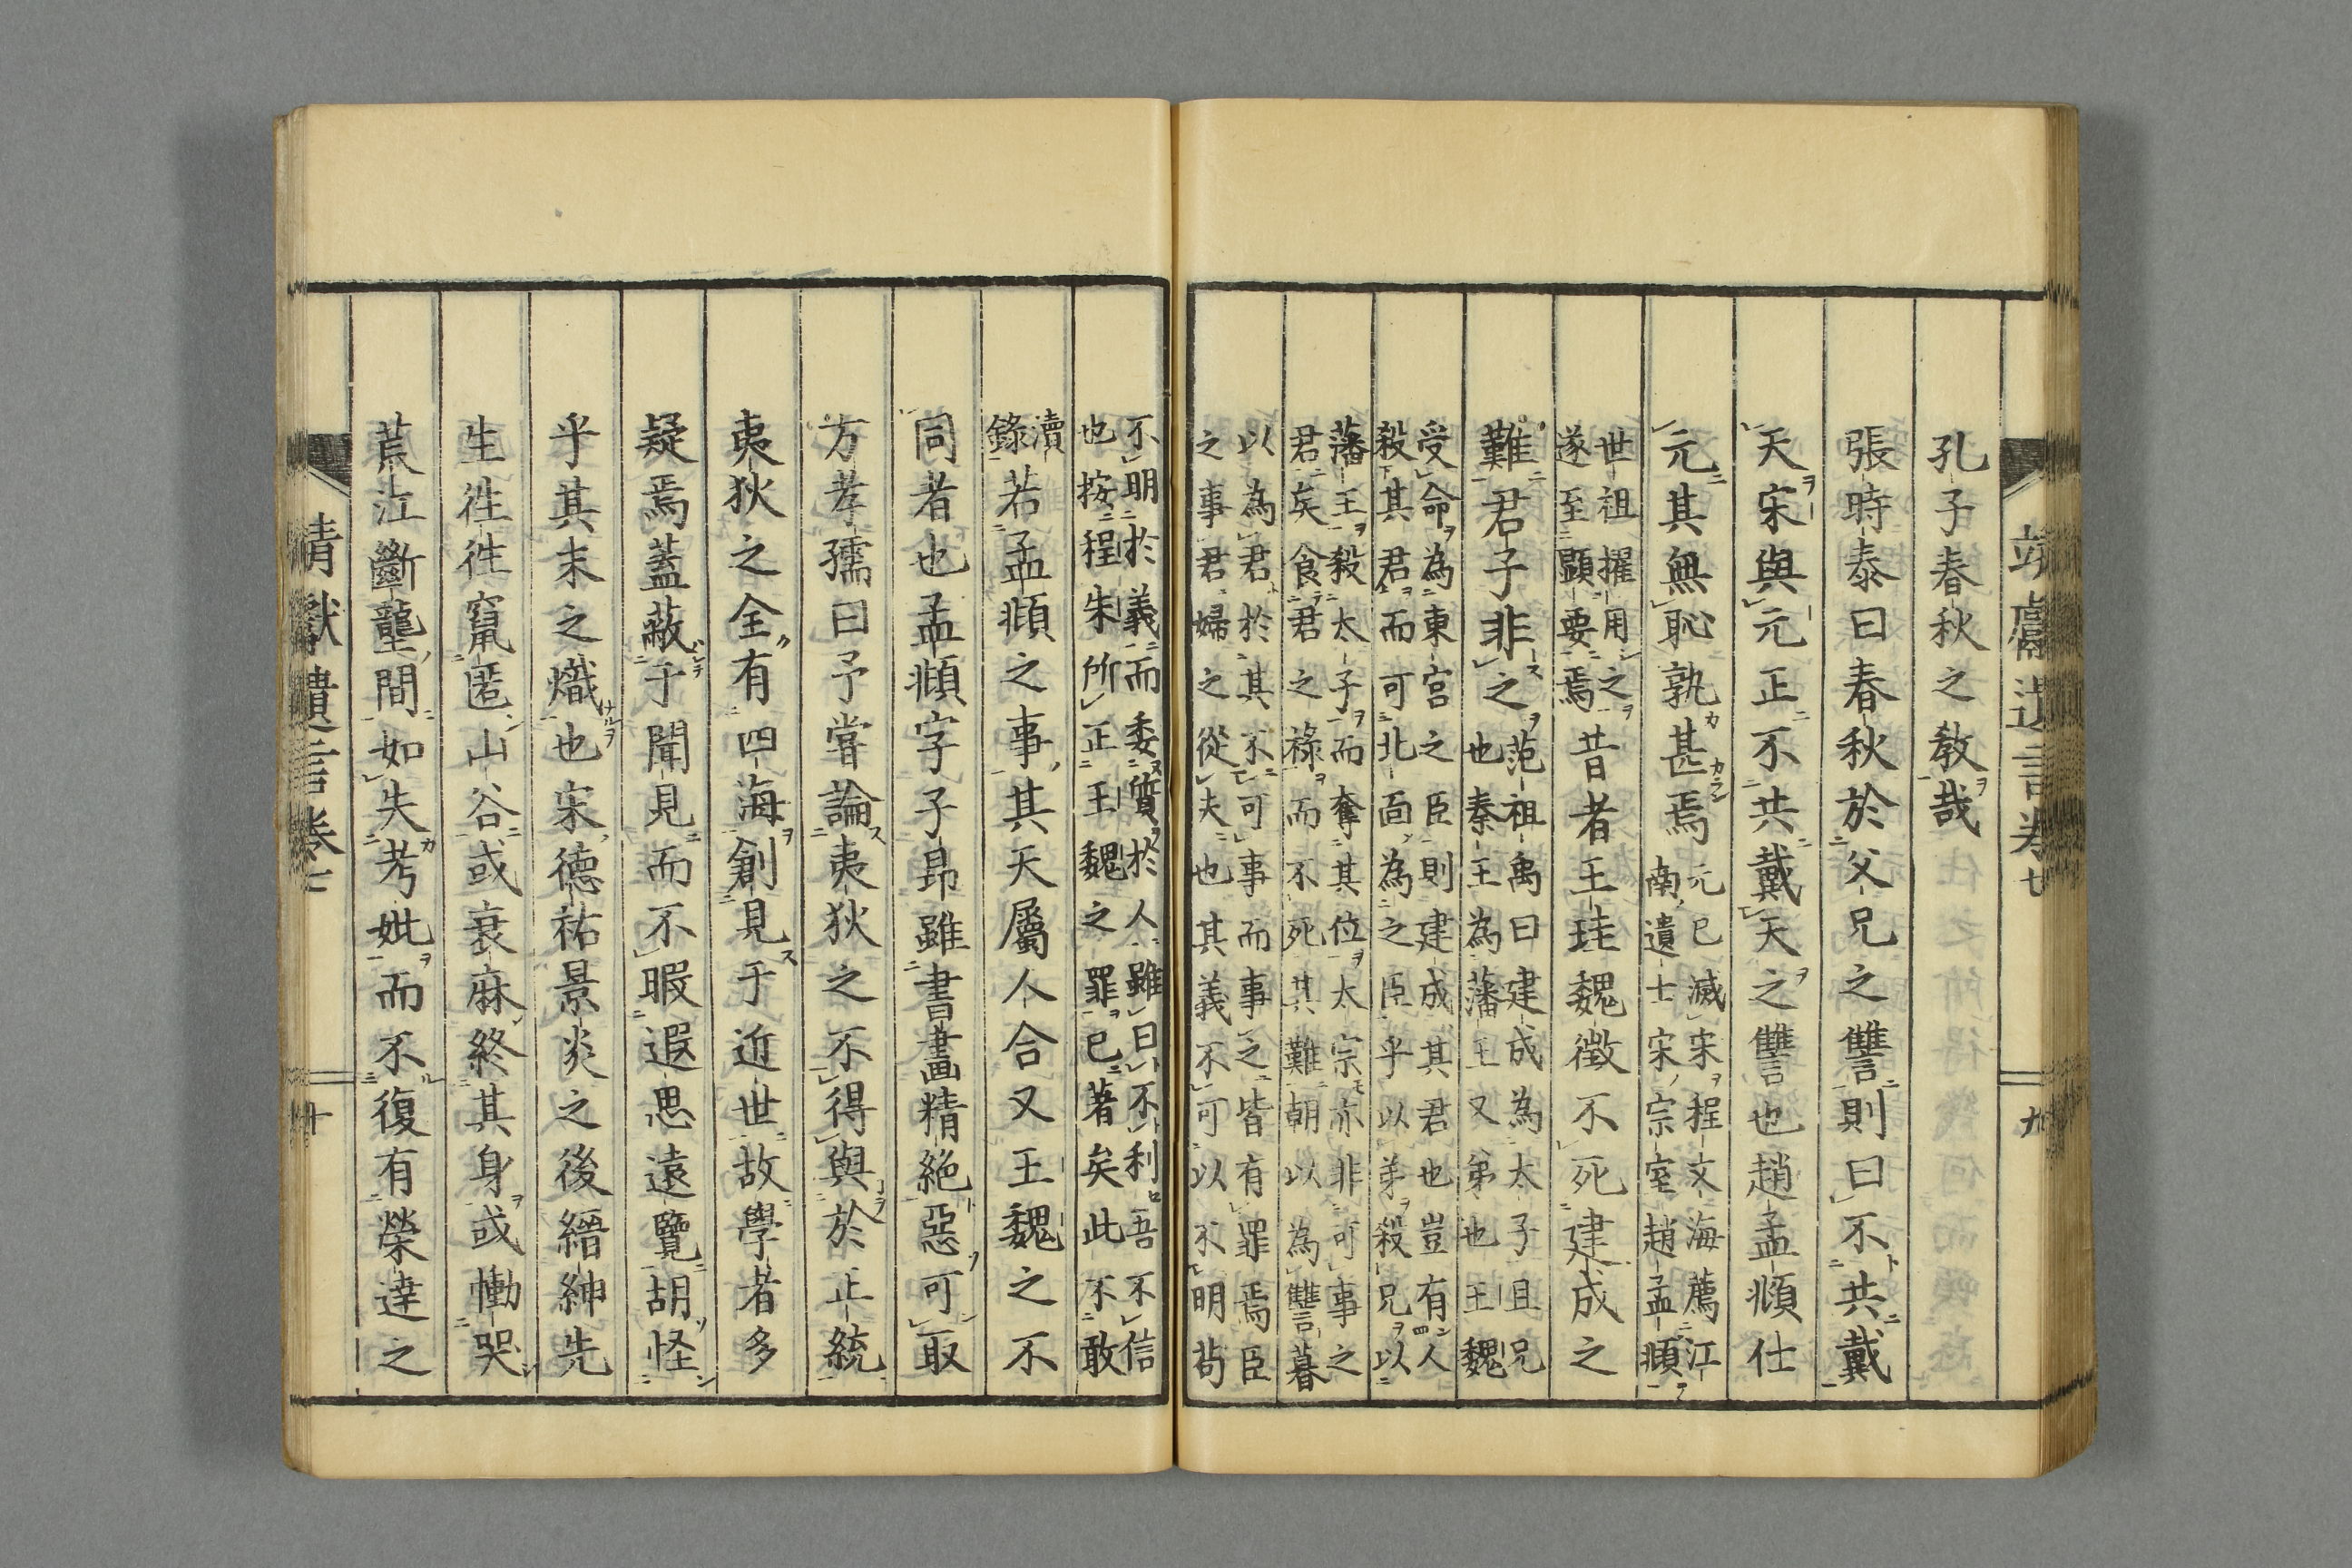 靖獻遺言卷七 九
孔子春秋之教哉
張時泰曰春秋於父兄之讐則曰不共戴
天宋與元正不共戴天之讐也趙孟頫仕
元其無恥孰甚焉
元已滅宋程文海薦江
南遺士宋宗室趙孟頫
世祖擢用之
遂至顯要焉
昔者王珪魏徴不死建成之
難君子非之
范祖禹曰建成為太子且兄
也秦王為藩王又弟也王魏
受命為東宮之臣則建成其君也豈有人
殺其君而可北面為之臣乎以弟殺兄以
藩王殺太子而奪其位太宗亦非可事之
君矣食君之祿而不死其難朝以為讐暮
以為君於其不可事而事之皆有罪焉臣
之事君婦之從夫也其義不可以不明苟
不明於義而委質於人雖曰不利吾不信
也按程朱所正王魏之罪已著矣此不敢
瀆
錄
若孟頫之事其天屬人合又王魏之不
同者也孟頫字子昻雖書畫精絶惡可取
方孝孺曰予嘗論夷狄之不得與於正統
夷狄之全有四海創見于近世故學者多
疑焉蓋蔽于聞見而不暇遐思遠覽胡怪
乎其末之熾也宋德祐景炎之後縉紳先
生徃徃竄匿山谷或衰麻終其身或慟哭
荒江斷壟間如失考妣而不復有榮達之
靖獻遺言卷七 十